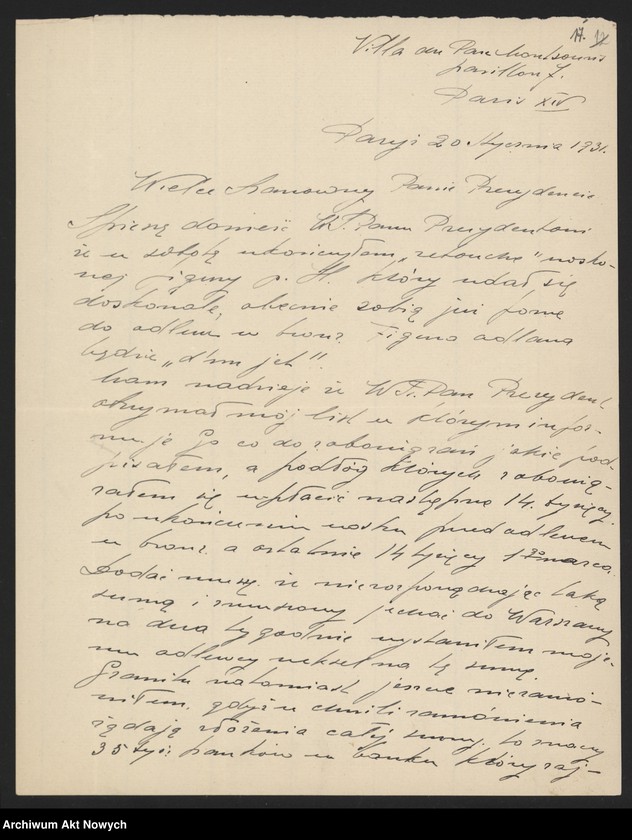 17.
Villa du Parc Montsouris
pavillon 7.
Paris XIV
Paryż 20 stycznia 1931.
Wielce Szanowny Panie Prezydencie
Spieszę donieść W.P. Panu Prezydentowi
że w sobotę ukończyłem „retouche" wosko-
wej figury p. H. który udał się
doskonale, obecnie robią już formę
do odlewu w bronz. Figura odlana
będzie „d'un jet".
Mam nadzieję że W.P. Pan Prezydent
otrzymał mój list w którym infor-
muję Go co do zobowiązań jakie pod-
pisałem, a podłóg których zobowią-
załem się wpłacić następne 14. tysięcy
po ukończeniu wosku przed odlewem
w bronz. a ostatnie 14 tysięcy 1 marca.
Dodać muszę że nierozporządzając taką
sumą i zmuszony jechać do Warszawy
na dwa tygodnie wystawiłem moje-
mu odlewcy weksel na tę sumę.
Granitu natomiast jeszcze niezamó-
wiłem. gdyż w chwili zamówienia
żądają złożenia całej sumy, to znaczy
35 tys: franków w banku który zaj-
Archiwum Akt Nowych